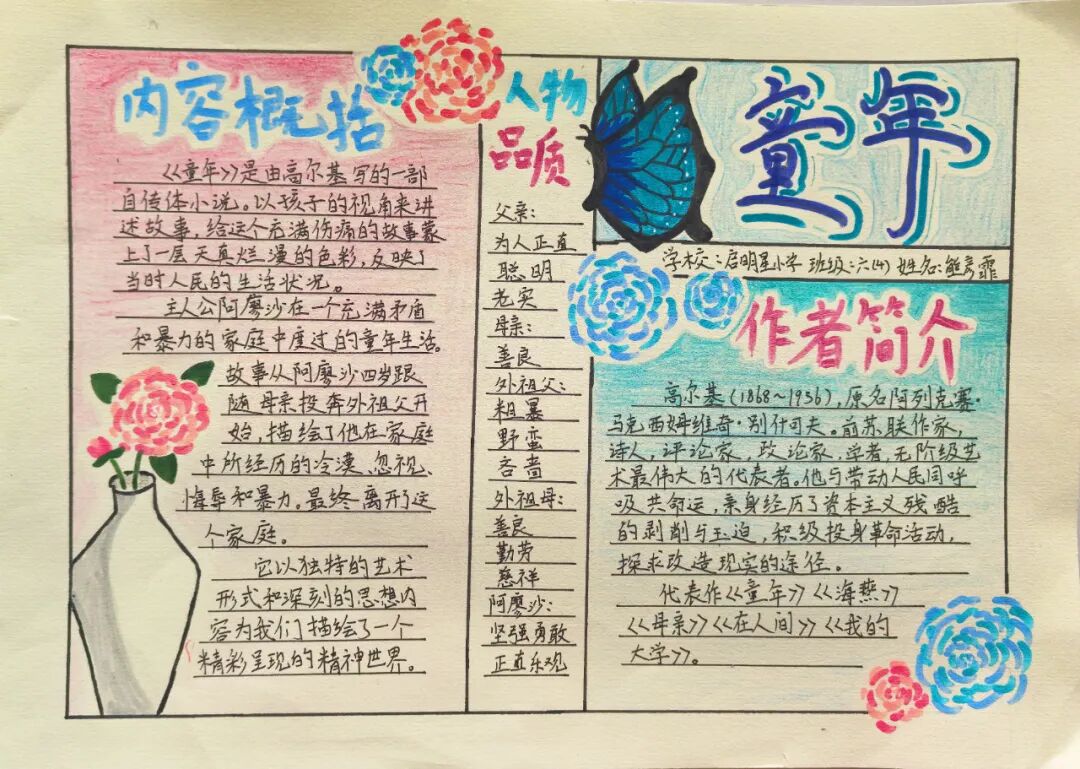 内容概括
《童年》是由高尔基写的一部
自传体小说。以孩子的视角来讲
述故事，给这个充满伤痛的故事蒙
上了一层天真烂漫的色彩，反映了
当时人民的生活状况。
主人公阿廖沙在一个充满矛盾
和暴力的家庭中度过的童年生活。
故事从阿廖沙四岁跟
随母亲投奔外祖父开
始，描绘了他在家庭
中所经历的冷漠、忽视、
侮辱和暴力。最终离开了这
个家庭。
它以独特的艺术
形式和深刻的思想内
容为我们描绘了一个
精彩呈现的精神世界。
人物
品质
父亲：
为人正直
聪明
老实
母亲：
善良
外祖父：
粗暴
野蛮
吝啬
外祖母：
善良
勤劳
慈祥
阿廖沙：
坚强勇敢
正直乐观
童年
学校：启明星小学 班级：六(4) 姓名：熊彦霏
作者简介
高尔基(1868~1936)，原名阿列克赛·
马克西姆维奇·别什可夫。前苏联作家，
诗人，评论家，政论家，学者，无阶级艺
术最伟大的代表者。他与带动人民同呼
吸共命运，亲身经历了资本主义残酷
的剥削与玉迫，积级投身革命活动，
探求改造现实的途径。
代表作《童年》《海燕》
《母亲》《在人间》《我的
大学》。